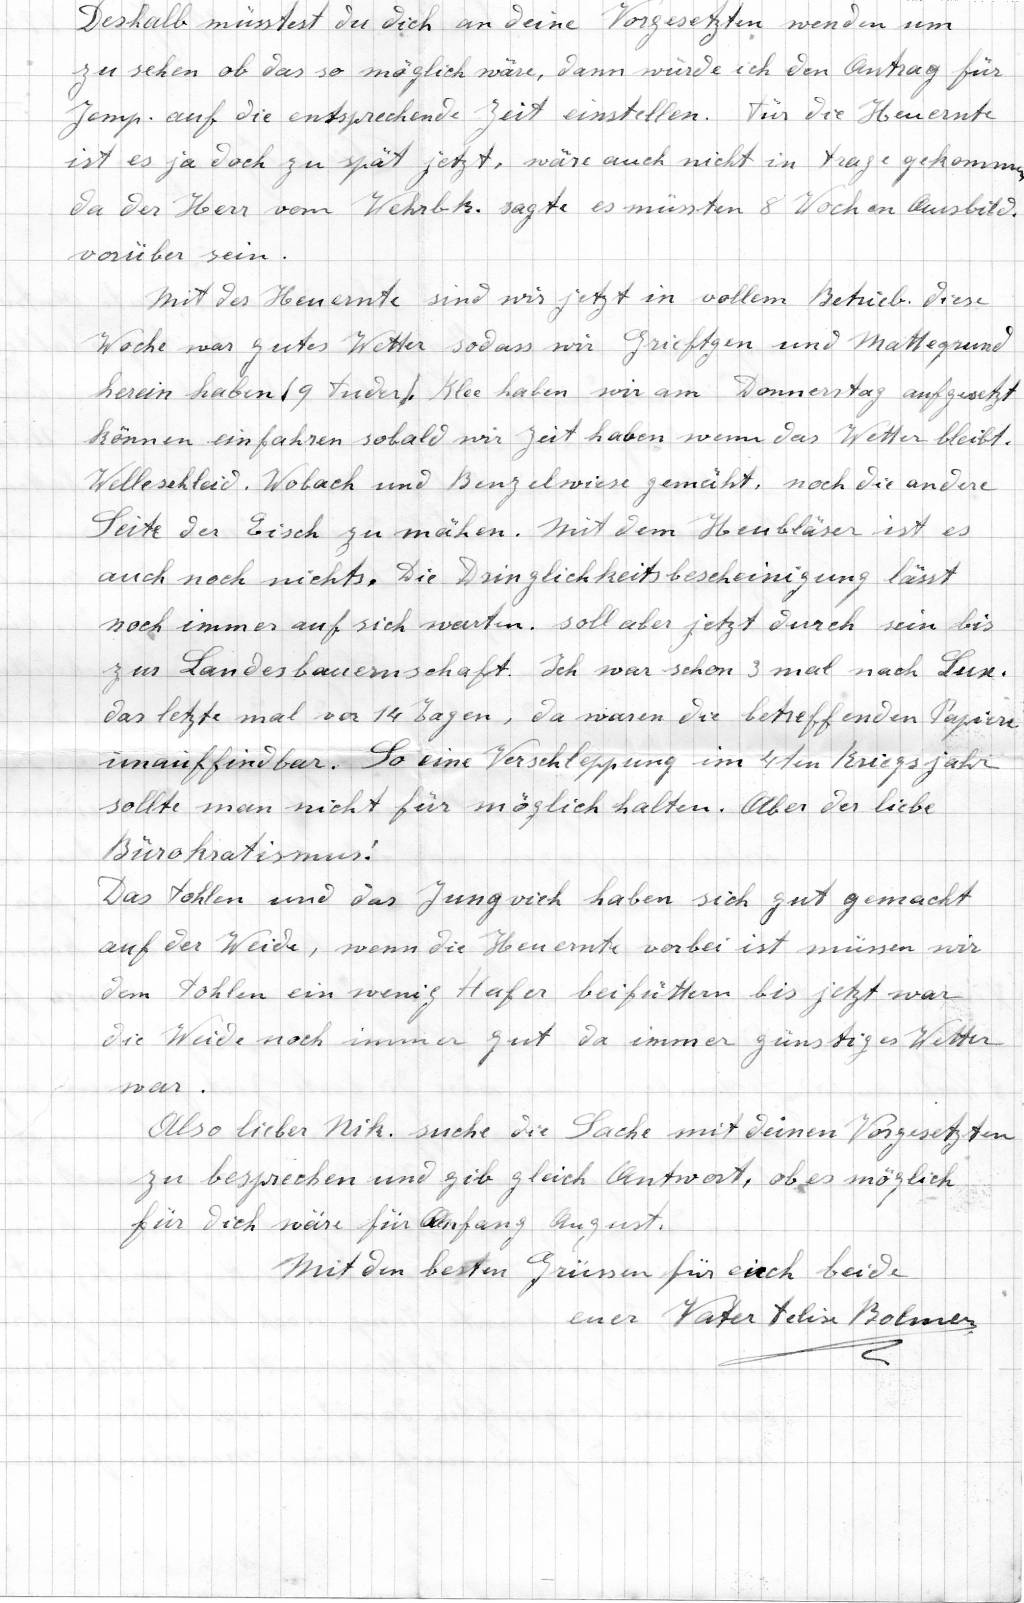 Deshalb müsstest du dich an deine Vorgesetzten wenden um
zu sehen ob das so möglich wäre, dann würde ich den Antrag für
Jemp. auf die entsprechende Zeit einstellen. Für die Heuernte
ist es ja doch zu spät jetzt, wäre auch nicht in Frage gekommen,
da der Herr vom Wehrbk. sagte es müssten 8 Wochen Ausbild.
vorüber sein.
Mit der Heuernte sind wir jetzt in vollem Betrieb. diese
Woche war gutes Wetter sodass wir Grieftgen und Mattegrund
herein haben (9 Fuder). Klee haben wir am Donnerstag aufgesetzt
können einfahren sobald wir Zeit haben wenn das Wetter bleibt.
Welleschleid. Wobach und Benzelwiese gemäht, noch die andere
Seite der Eisch zu mähen. Mit dem Heubläser ist es
auch noch nichts. Die Dringlichkeitsbescheinigung lässt
noch immer auf sich warten. soll aber jetzt durch sein bis
zur Landesbauernschaft. Ich war schon 3 mal nach Lux.
das letzte mal vor 14 Tagen, da waren die betreffenden Papiere
unauffindbar. So eine Verschleppung im 4ten Kriegsjahr
sollte man nicht für möglich halten. Aber der liebe
Bürokratismus!
Das Fohlen und das Jungvieh haben sich gut gemacht
auf der Weide, wenn die Heuernte vorbei ist müssen wir
dem Fohlen ein wenig Hafer beifüttern bis jetzt war
die Weide noch immer gut da immer günstiges Wetter
war.
Also lieber Nik. suche die Sache mit deinen Vorgesetzten
zu besprechen und gib gleich Antwort, ob es möglich
für dich wäre für Anfang August.
Mit den besten Grüssen für euch beide
euer Vater Felix Bolmer